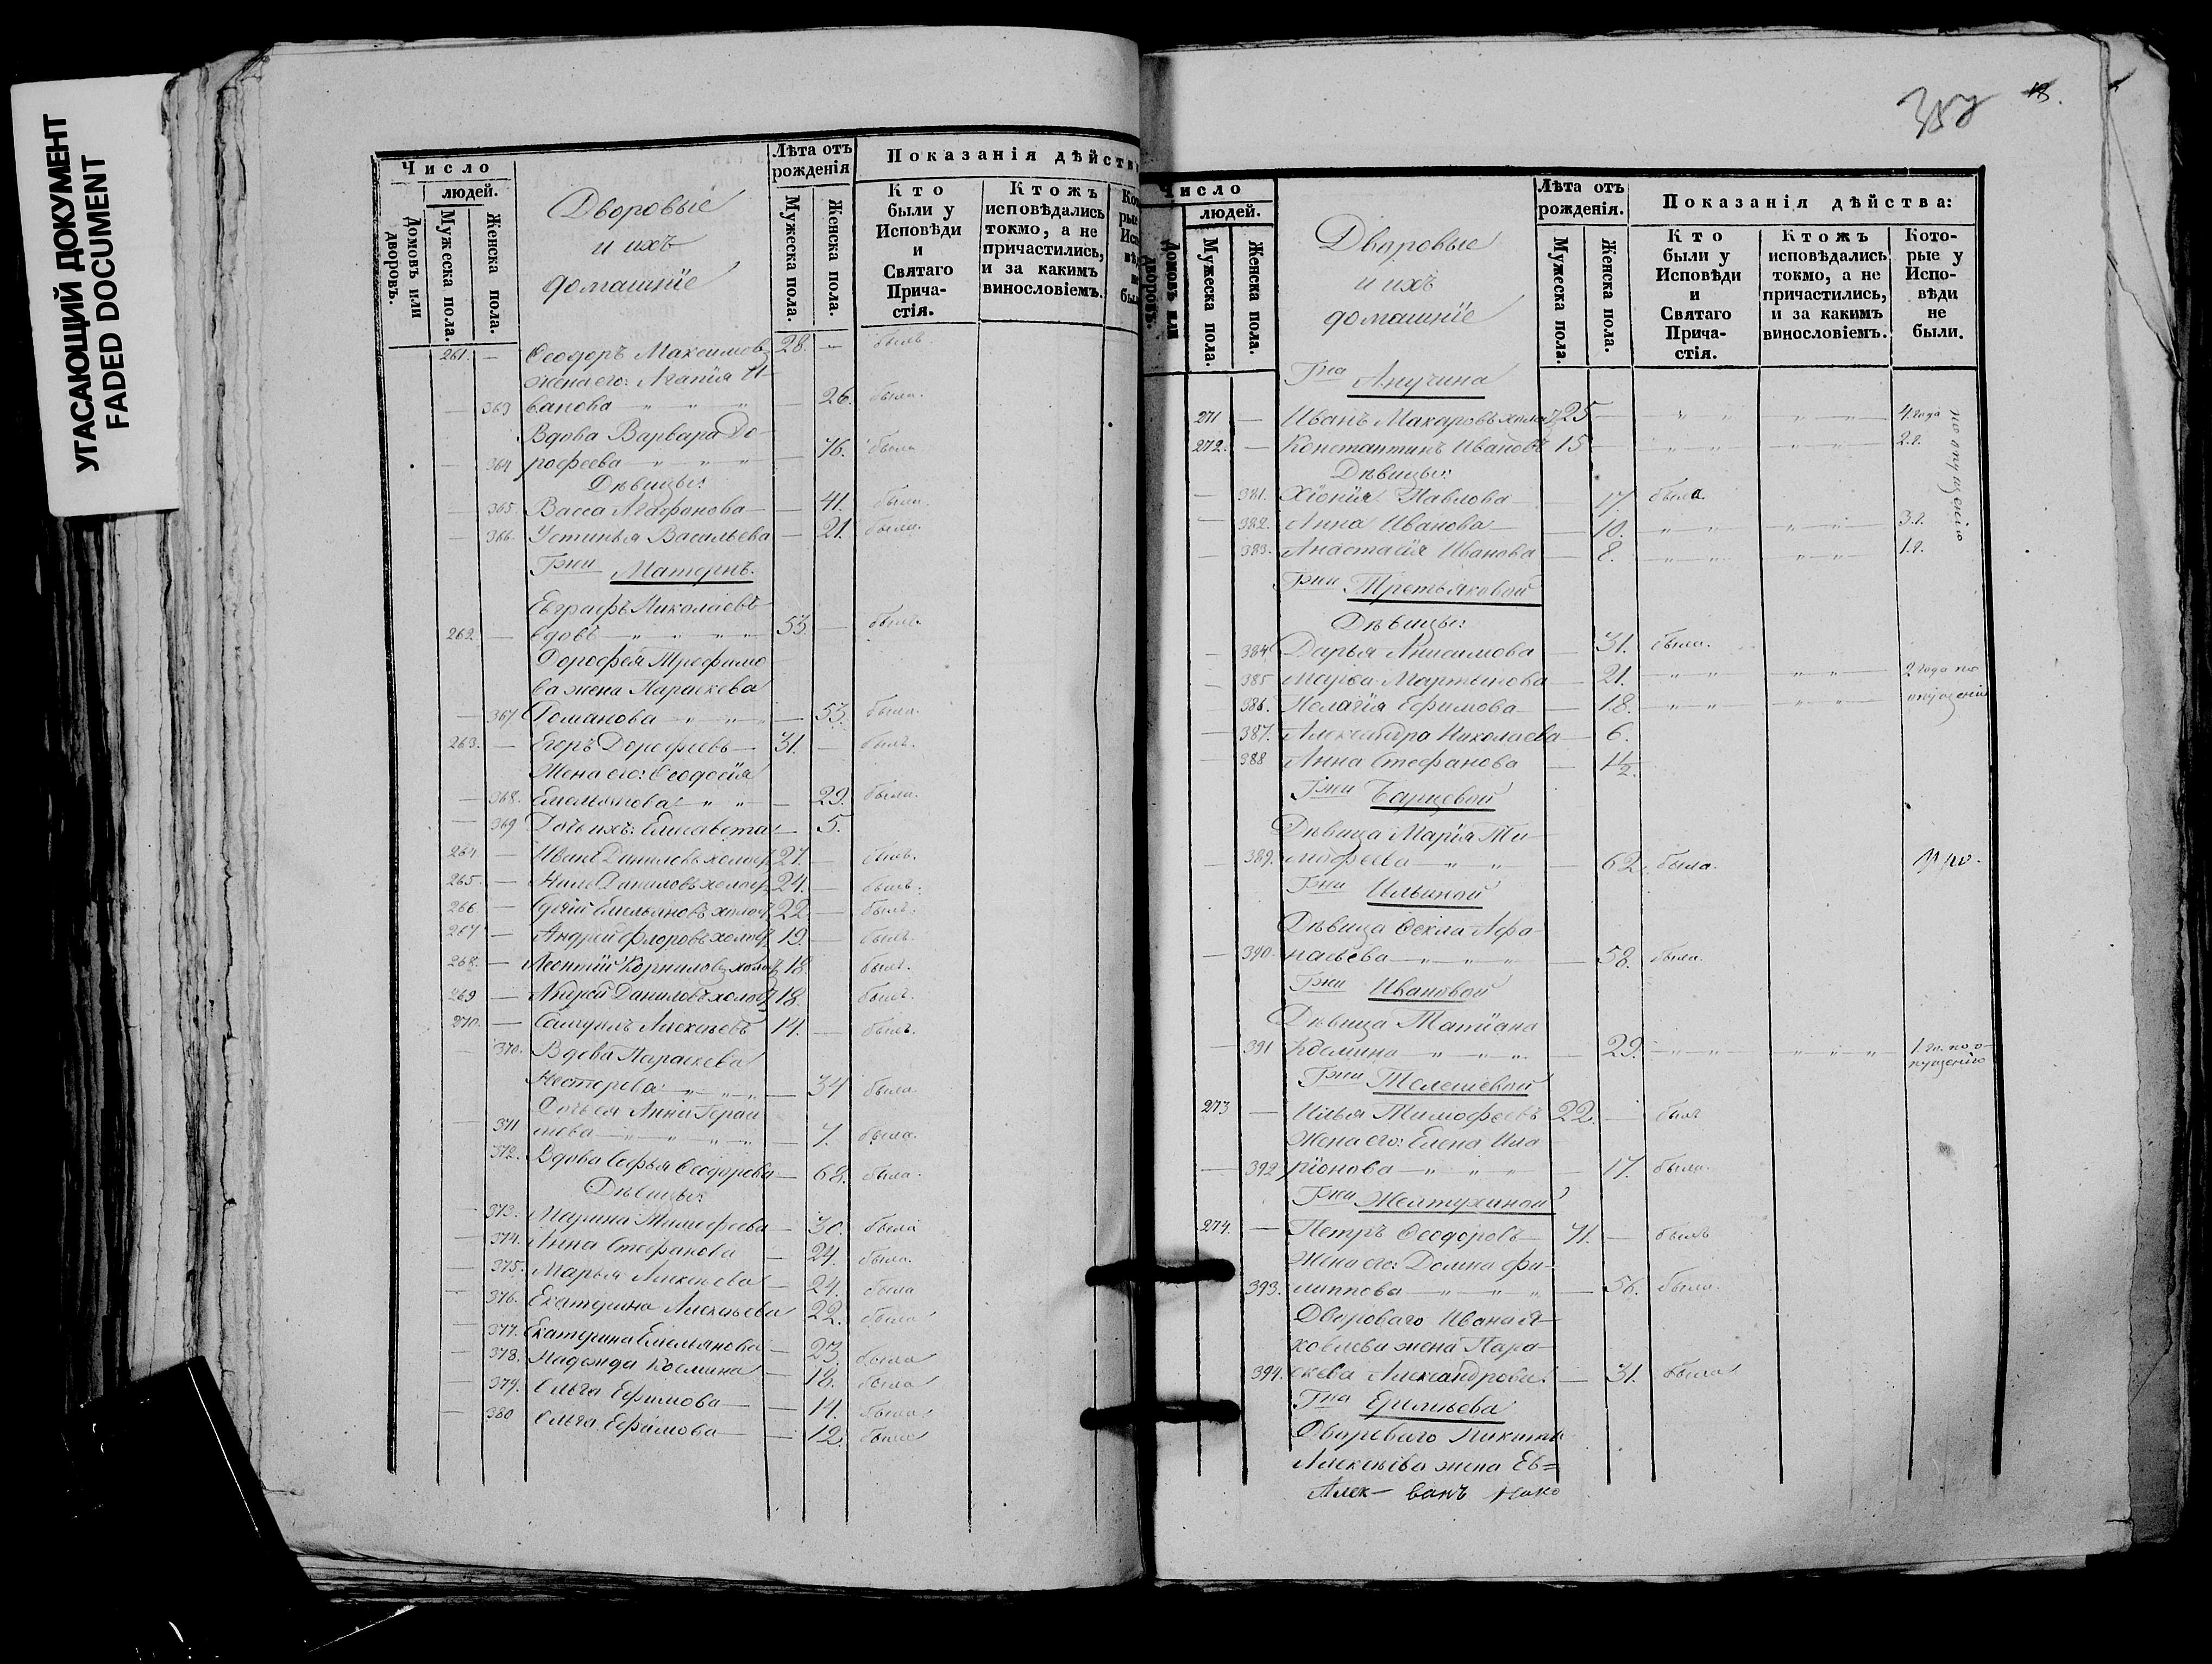 УГАСАЮЩИЙ ДОКУМЕНТ
FADED DOCUMENT
Число
людей.
Домовъ или дворовъ.
Мужеска пола.
Женска пола.
Дворовые
и ихъ
домашнїе
Лѣта отъ рожденія
Мужеска пола.
Женска пола.
Показанія дѣйств
Кто были у Исповѣди и Святаго Причастія.
Ктожъ исповѣдались токмо, а не причастились, и за какимъ винословіемъ.
261. — Ѳеодоръ Максимовъ 28. — былъ.
жена его: Агапїя И-
— 363 ванова — 26. была.
Вдова Варвара До-
— 364 рофеева — 76. была
Дѣвицы:
— 365. Васса Агафонова — 41. была.
— 366. Устинья Васильева — 21. была.
Гжи Матернъ.
Евграфъ Николаевъ
262. — вдовъ 53 — былъ.
Дорофея Трофимо
ва жена Параскева
— 367 Романова — 53. была.
263. — Егоръ Дорофеевъ 31. — былъ.
Жена его: Ѳеодосїя
— 368. Емельянова — 29. была.
— 369 Дочь ихъ: Елисавета — 5.
264 — Иванъ Даниловъ холост 27. — былъ.
265. — Нилъ Даниловъ холост 24. — былъ.
266. — Сергій Емельяновъ холост 22 — былъ.
267 — Андрей Флоровъ холост 19. — былъ.
268. — Леонтій Корниловъ холост 18. былъ.
269 — Андрей Даниловъ холост 18. былъ.
270. — Самуилъ Алексѣевъ 14. — былъ.
— 370. Вдова Параскева
Нестерева — 34 была.
Дочь ея Анна Гераси
— 371 мова — 7. была.
372. Вдова Софья Ѳеодорова — 68. была.
Дѣвицы:
— 373. Марина Тимофеева — 30. была
— 374. Анна Стефанова — 24. была.
— 375. Марья Алексѣева — 24. была
— 376. Екатерина Алексѣева 22. была
— 377. Екатерина Емельянова — 23. была
— 378. Надежда Козмина — 18. была
— 379. Ольга Ефимова — 14. была
— 380 Ольга Ефимова — 12. была
Число
людей.
Домовъ или дворовъ.
Мужеска пола.
Женска пола.
Дворовые
и ихъ
домашнїе
Лѣта отъ рожденія.
Мужеска пола.
Женска пола.
Показанія дѣйства:
Кто были у Исповѣди и Святаго Причастія.
Ктожъ исповѣдались токмо, а не причастились, и за какимъ винословіемъ.
Которые у Исповѣди не были.
Гна Анучина
271 — Иванъ Макаровъ холост 25 — 4. года
по опущенію
272. — Константинъ Ивановъ 15 2. г.
Дѣвицы:
— 381. Хіонія Павлова — 17. была
— 382. Анна Иванова — 10. 3. г.
— 383. Анастасїя Иванова — 8. 1. г.
Гжи Третьяковой
Дѣвицы:
— 384 Дарья Анисимова — 31. была.
— 385 Марѳа Мартынова — 21. 2 года по
— 386. Пелагїя Ефимова — 18. опущенію
— 387. Александра Николаева — 6.
— 388 Анна Стефанова — 1 1/2.
Гжи Барцевой
Дѣвица Марїя Ти-
— 389. мофеева — 62. была.
Гжи Ильиной
Дѣвица Ѳекла Афа-
— 390 насьева — 58. была.
Гжи Ивановой
Дѣвица Татїана
— 391 Козмина — 29. 1 го. по о-
пущенію
Гжи Телешевой
273 — Илья Тимофеевъ 22. — былъ
Жена его: Елена Ила-
— 392 рїонова — 17. была.
Гжи Желтухиной
274. — Петръ Ѳеодоровъ 71. — былъ
Жена его: Домна Фи-
393. липпова — 56. была.
Двороваго Ивана Я-
ковлева жена Пара-
394. скева Александрова — 31. была
Гна Ермилова
Двороваго Никиты
Алексѣева жена Ев=
Алек-